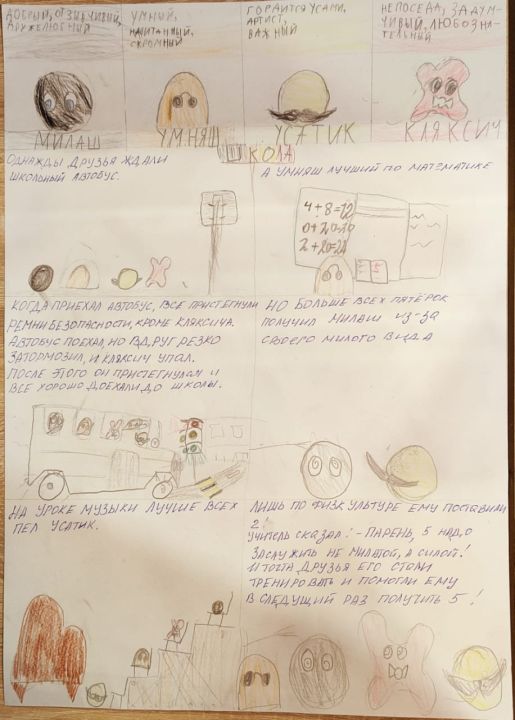 ДОБРЫЙ, ОТЗЫВЧИВЫЙ,
ДРУЖЕЛЮБНЫЙ
МИЛАШ
УМНЫЙ,
НАЧИТАННЫЙ,
СКРОМНЫЙ
УМНЯШ
ГОРДИТСЯ УСАМИ,
АРТИСТ,
ВАЖНЫЙ
УСАТИК
НЕПОСЕДА, ЗАДУМ-
ЧИВЫЙ, ЛЮБОЗНА-
ТЕЛЬНЫЙ
КЛЯКСИЧ
ШКОЛА
ОДНАЖДЫ ДРУЗЬЯ ЖДАЛИ
ШКОЛЬНЫЙ АВТОБУС.
А УМНЯШ ЛУЧШИЙ ПО МАТЕМАТИКЕ
4+8=12
2+20=22
КОГДА ПРИЕХАЛ АВТОБУС, ВСЕ ПРИСТЕГНУЛИ
РЕМНИ БЕЗОПАСНОСТИ, КРОМЕ КЛЯКСИЧА.
АВТОБУС ПОЕХАЛ, НО ВДРУГ РЕЗКО
ЗАТОРМОЗИЛ, И КЛЯКСИЧ УПАЛ.
ПОСЛЕ ЭТОГО ОН ПРИСТЕГНУЛСЯ И
ВСЕ ХОРОШО ДОЕХАЛИ ДО ШКОЛЫ.
НО БОЛЬШЕ ВСЕХ ПЯТЁРОК
ПОЛУЧИЛ МИЛАШ ИЗ-ЗА
СВОЕГО МИЛОГО ВИДА
НА УРОКЕ МУЗЫКИ ЛУЧШЕ ВСЕХ
ПЕЛ УСАТИК.
ЛИШЬ ПО ФИЗКУЛЬТУРЕ ЕМУ ПОСТАВИЛИ
2!
УЧИТЕЛЬ СКАЗАЛ: - ПАРЕНЬ, 5 НАДО
ЗАСЛУЖИТЬ НЕ МИЛОТОЙ, А СИЛОЙ!
И ТОГДА ДРУЗЬЯ ЕГО СТАЛИ
ТРЕНИРОВАТЬ И ПОМОГЛИ ЕМУ
В СЛЕДУЩИЙ РАЗ ПОЛУЧИТЬ 5!